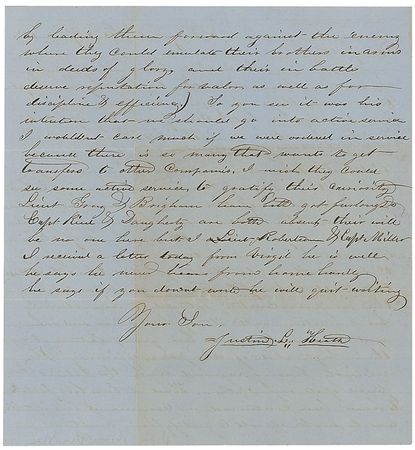 by leading them forward against the enemy
where they could emulate their brothers in arms
in deeds of glory and their in battle
deserve reputation for valor as well as for
discipline & efficiency) So you see it was his
intention that we should go into active service
I wouldent care much if we were ordered in service
because there is so many that wants to get
transfers to other Companies. I wish they could
see some active service to gratify their curiosity
Lieut & Brigham have both got furloughs
Capt & Daugherty are both absent their will
be no one here but I & Lieut Robertson & Capt Miller
I received a letter today from Virgil he is well
he says he never hears from home hardly
he says if you do'nt write he will quit writing
Your Son,
Justin L. Heath